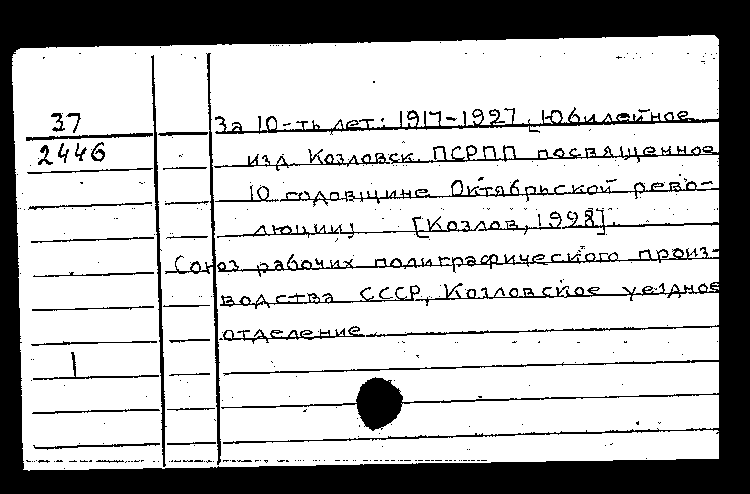 37 За 10-ть лет: 1917-1927. [Юбилейное
2446 изд. Козловск. ПСРПП посвященное
10 годовщине Октябрьской рево-
люции] [Козлов, 1928].
Союз рабочих полиграфического произ-
водства СССР, Козловское уездное
отделение
1